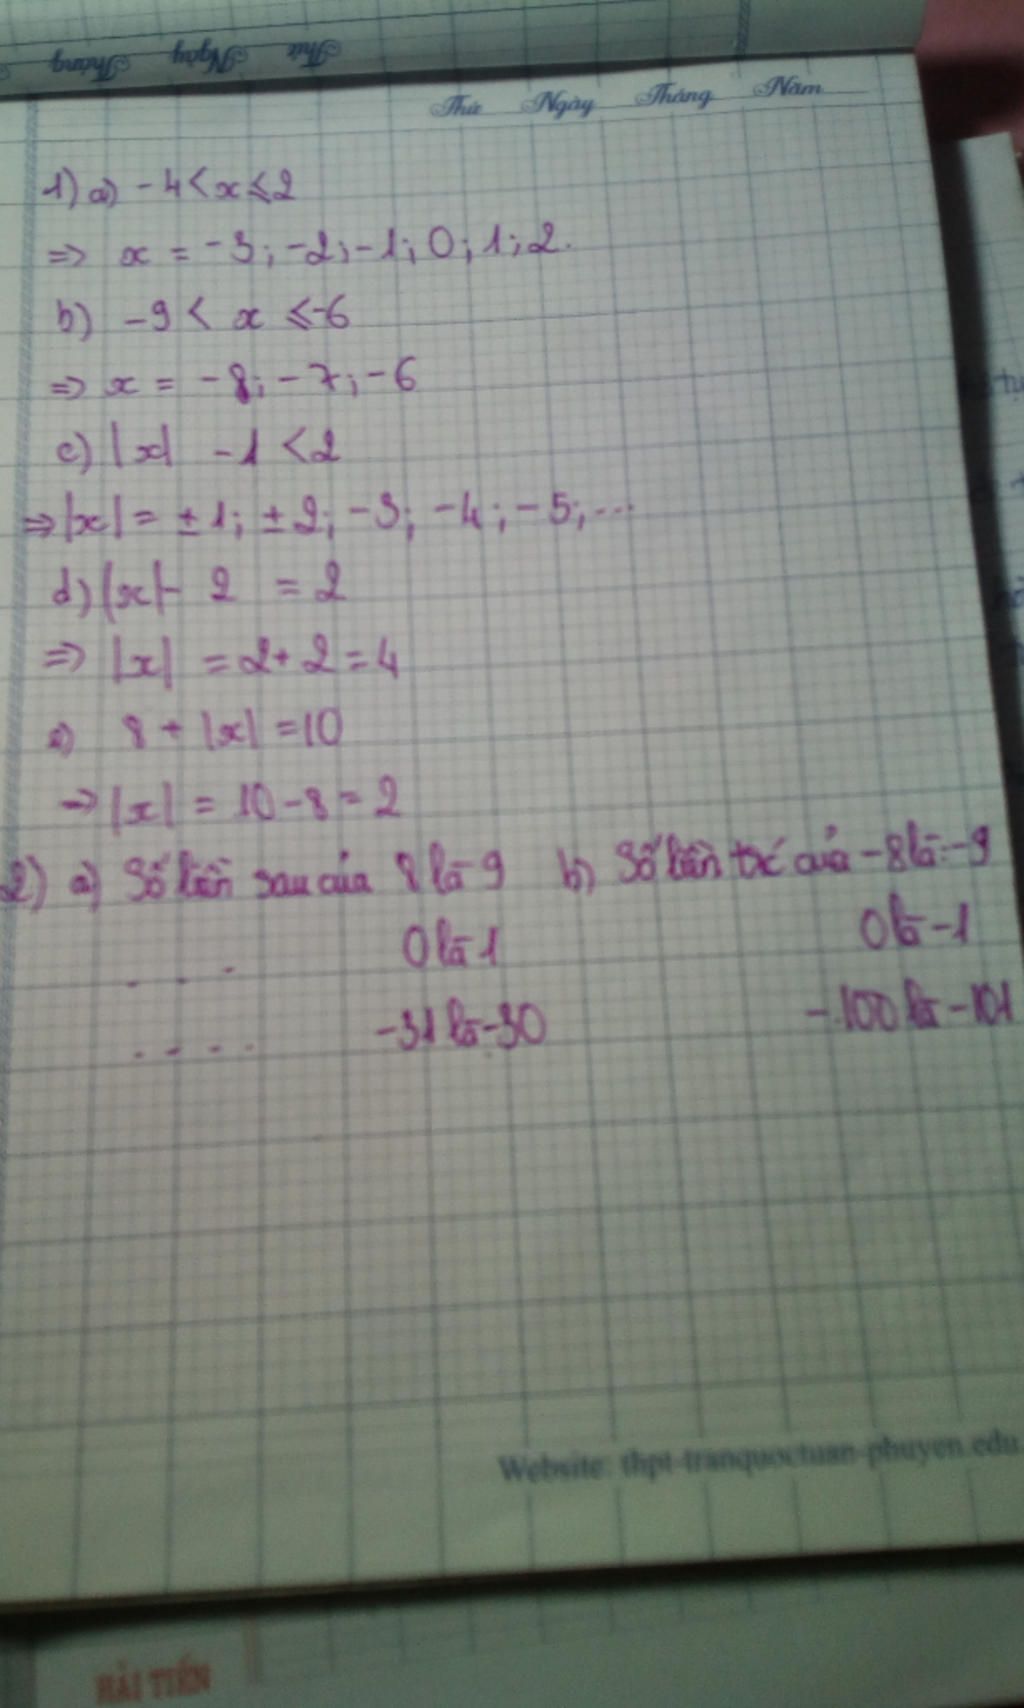 Thứ Ngày Tháng
Thứ Ngày Tháng Năm
1) a) -4 < x ≤ 2
=> x = -3; -2; -1; 0; 1; 2.
b) -9 < x ≤ -6
=> x = -8; -7; -6
c) |x| - 1 < 2
=> |x| = ±1; ±2; -3; -4; -5; ...
d) |x| - 2 = 2
=> |x| = 2 + 2 = 4
8 + |x| = 10
=> |x| = 10 - 8 = 2
2) a) Số liền sau của 8 là 9 b) Số liền trc của -8 là -9
... 0 là 1 0 là -1
.... -31 là -30 -100 là -101
Website: thpt-tranquoctuan-phuyen.edu
HẢI TIẾN